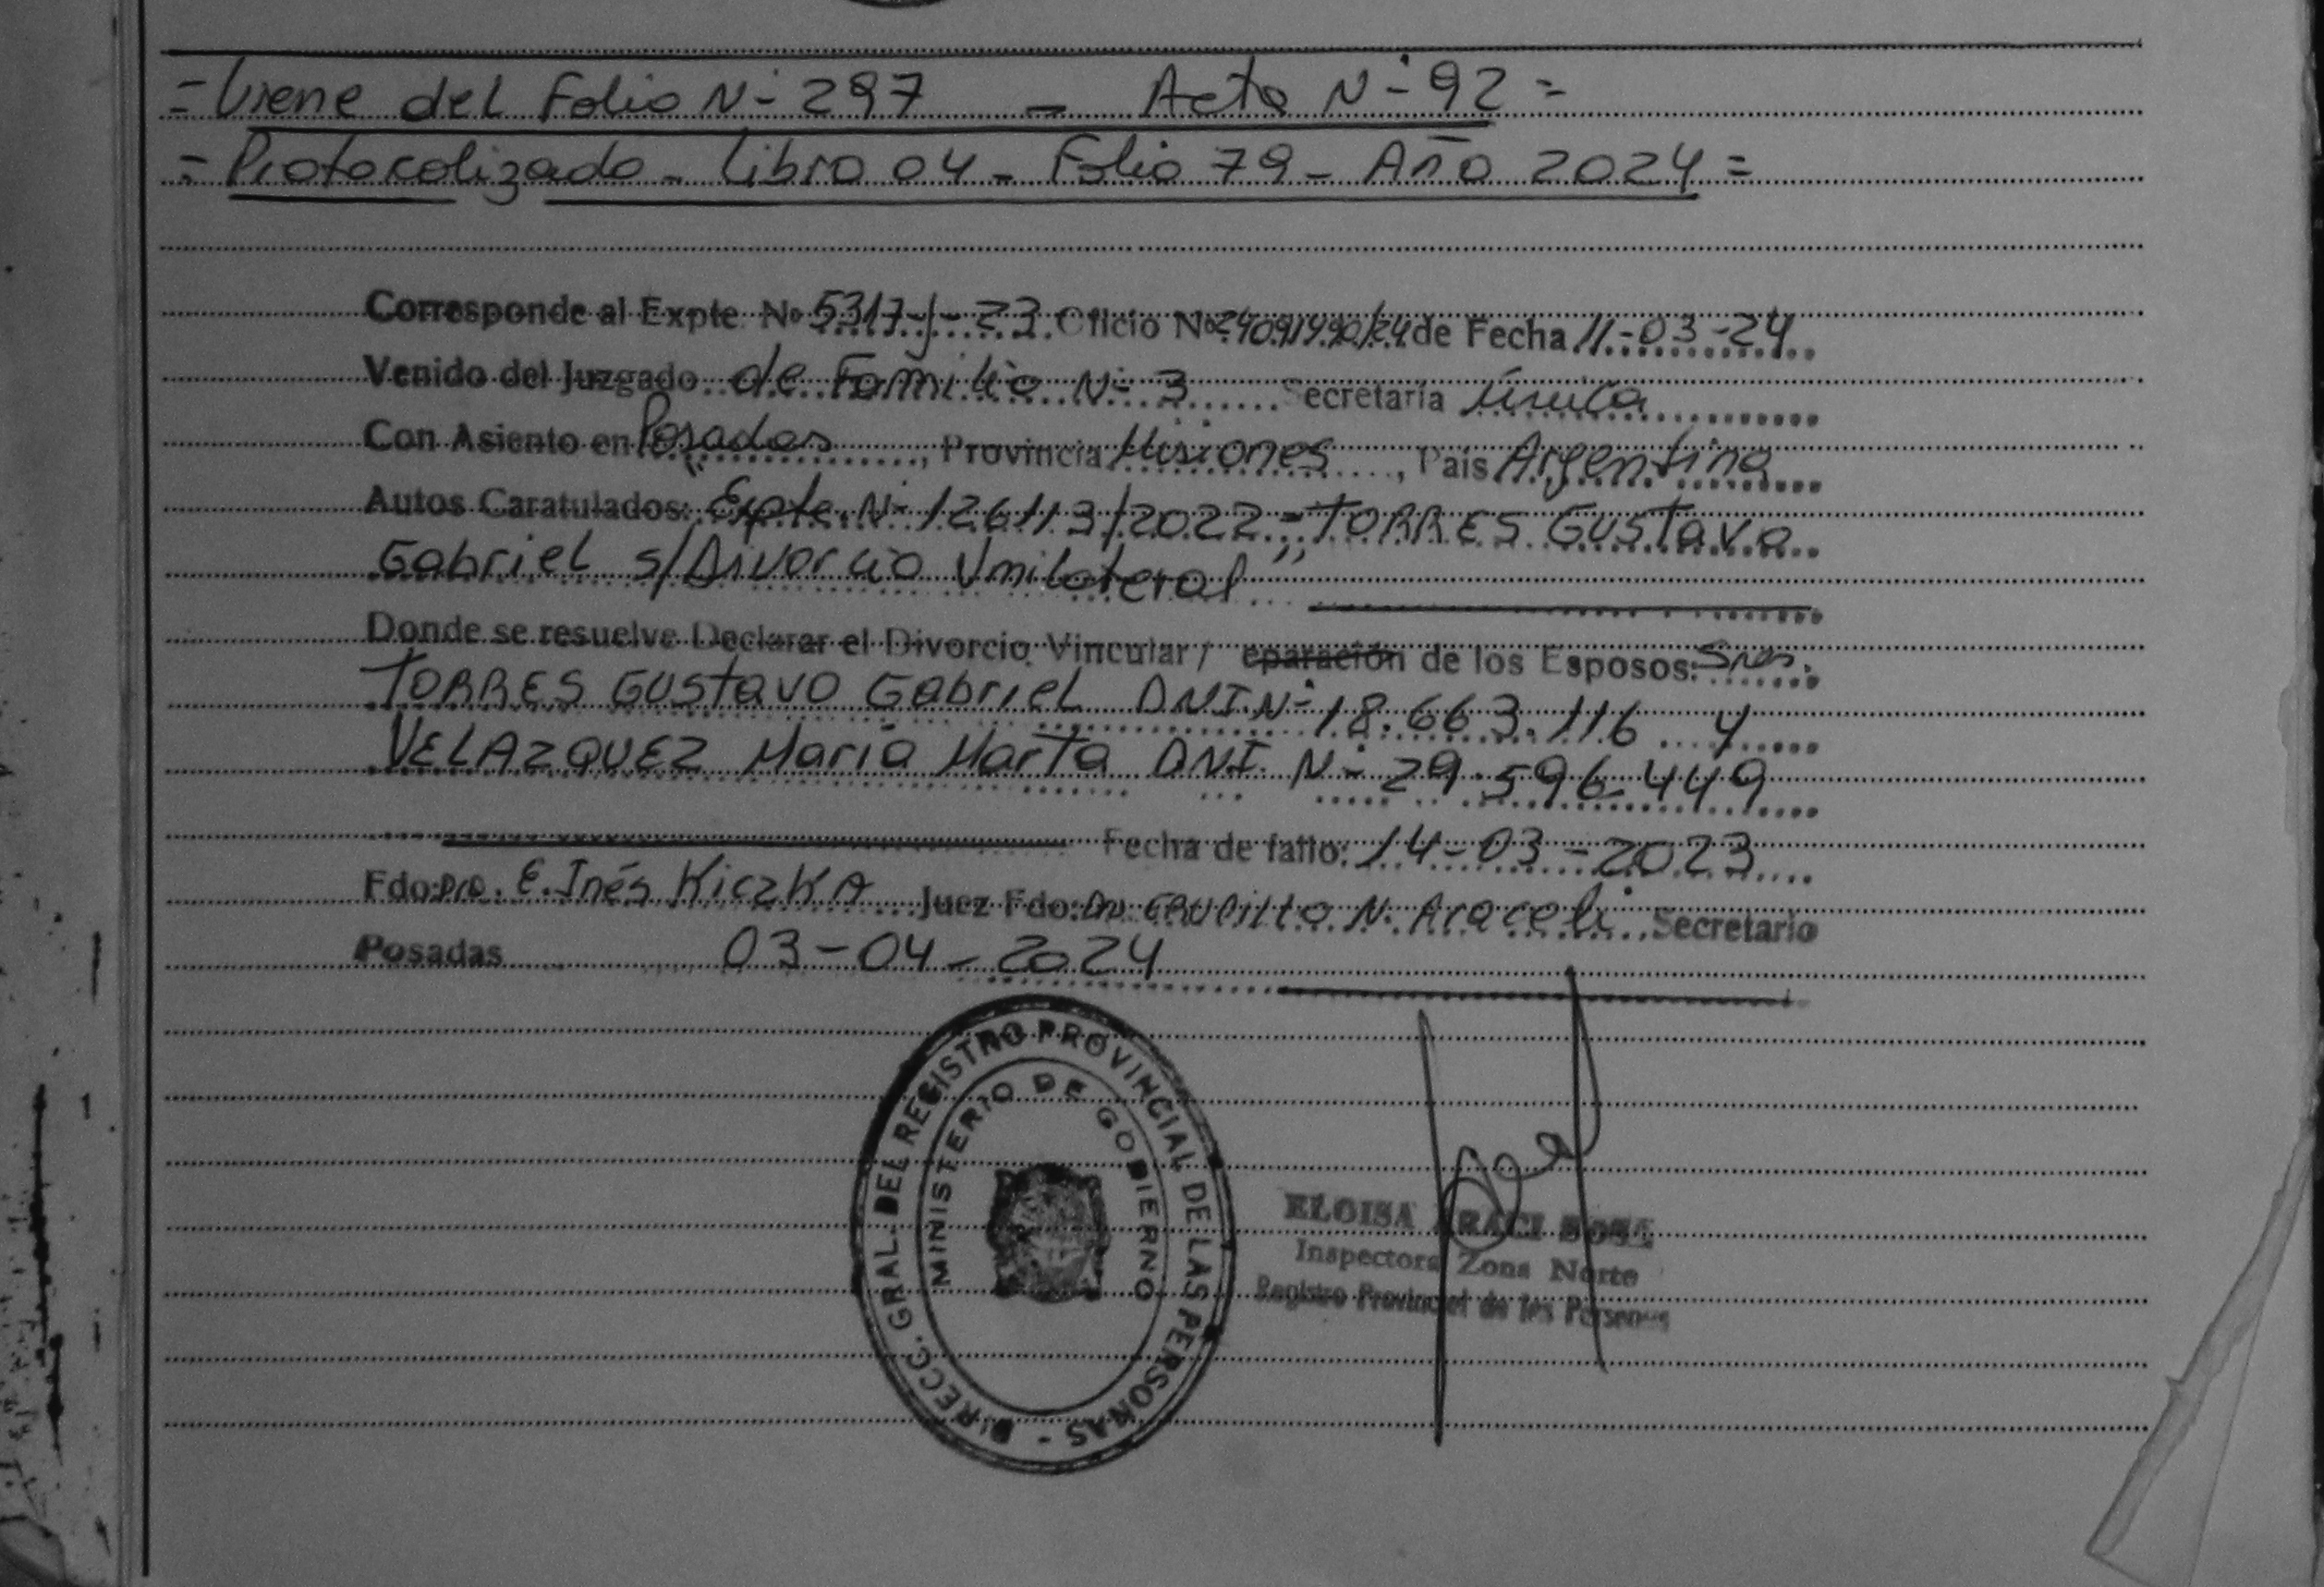 = Viene del Folio N- 297 - Acta N- 92 =
= Protocolizado - Libro 04 - Folio 79 - Año 2024 =
Corresponde al Expte. Nº 5317-J-23 Oficio Nº 24091490/24 de Fecha 11-03-24
Venido del Juzgado de Familia N- 3 Secretaría Única
Con Asiento en Posadas, Provincia Misiones, País Argentina
Autos Caratulados: Expte. N- 126113/2022 - TORRES GUSTAVO
Gabriel s/Divorcio Unilateral"
Donde se resuelve Declarar el Divorcio Vincular / eparación de los Esposos: Sres.
TORRES GUSTAVO Gabriel DNI N- 18.663.116 y
VELAZQUEZ María Marta DNI N- 29.596.449
Fecha de fallo: 14-03-2023
Fdo: Dra. E. Inés KiczKA Juez Fdo: N. Araceli Secretario
Posadas 03-04-2024
DIRECC. GRAL. DEL REGISTRO PROVINCIAL DE LAS PERSONAS -
MINISTERIO DE GOBIERNO
ELOISA ARACI SOSA
Inspectora Zona Norte
Registro Provincial de las Personas